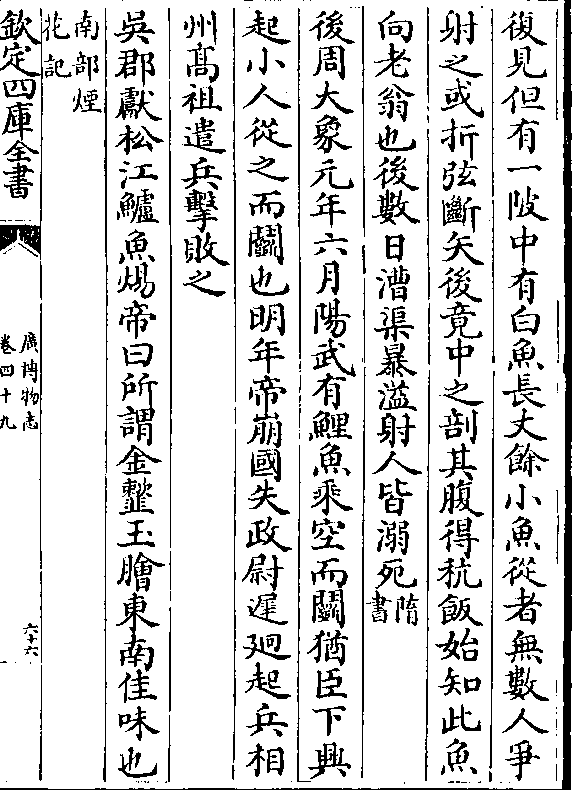 復見但有一陂中有白魚長丈餘小魚從者無數人爭
射之或折弦斷矢後竟中之剖其腹得秔飯始知此魚
向老翁也後數日漕渠暴溢射人皆溺死隋書
後周大象元年六月陽武有鯉魚乘空而鬭猶臣下興
起小人從之而鬭也明年帝崩國失政尉遲迥起兵相
州高祖遣兵擊敗之
吳郡獻松江鱸魚煬帝曰所謂金虀玉膾東南佳味也
南部煙花記
欽定四庫全書
廣博物志
卷四十九
六十六